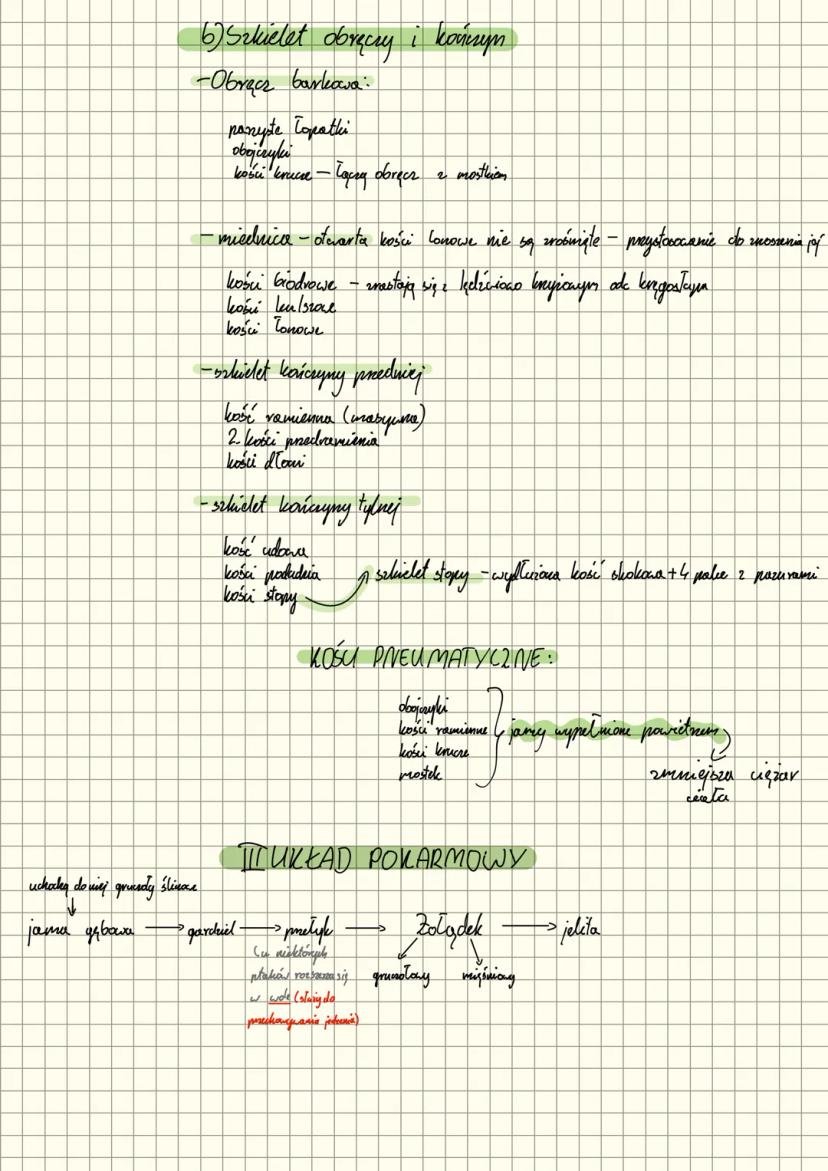 6) Szkielet obręczy i kończyn
- Obręcz barkowa:
parzyste łopatki
obojczyki
kości krucze – łączą obręcz z mostkiem
- miednica – otwarta kości łonowe nie są zrośnięte – przystosowanie do znoszenia jaj
kości biodrowe – zrastają się z lędźwiowo krzyżowym odc kręgosłupa
kości kulszowe
kości łonowe
- szkielet kończyny przedniej
kość ramienna (masywna)
2 kości przedramienia
kości dłoni
- szkielet kończyny tylnej
kość udowa
kości podudzia
kości stopy
szkielet stopy – wydłużona kość skokowa + 4 palce z pazurami
KOŚCI PNEUMATYCZNE:
obojczyki
kości ramienne
kości krucze
mostek
jamy wypełnione powietrzem
zmniejsza ciężar
ciała
III UKŁAD POKARMOWY
uchodzą do niej gruczoły ślinowe
jama gębowa → gardziel → przełyk → Żołądek → jelita
(u niektórych
ptaków rozszerza się
w wole (służy do
przechowywania jedzenia)
gruczołowy
mięśniowy